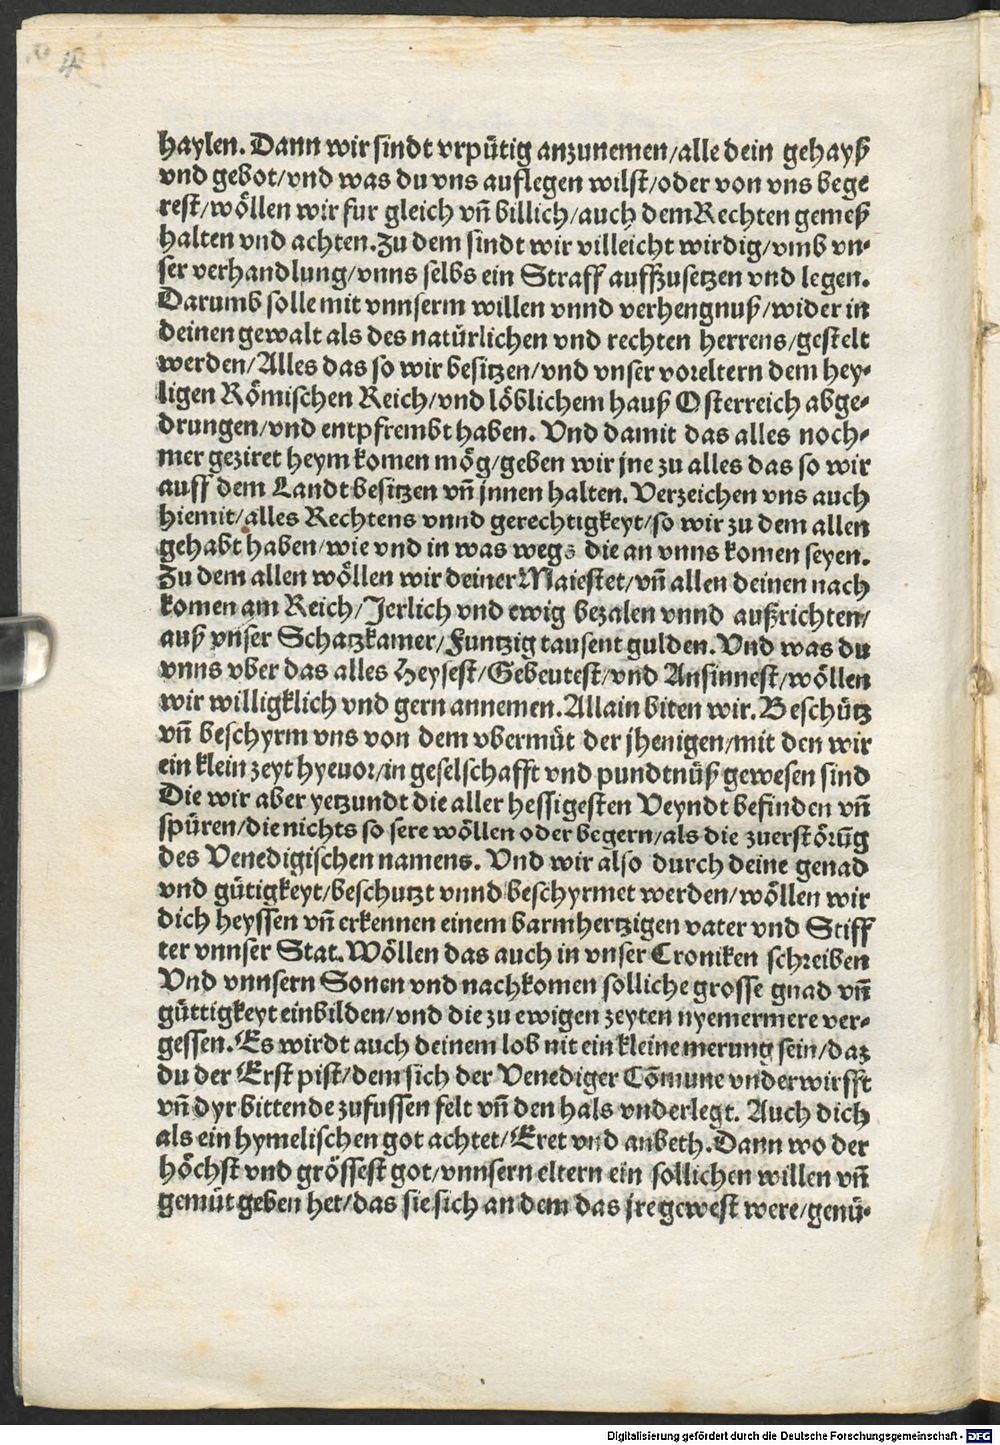 haylen. Dann wir sindt vrpütig anzunemen/alle dein gehayß
vnd gebot/vnd was du vns auflegen wilst/oder von vns bege
rest/wöllen wir fur gleich vñ billich/auch dem Rechten gemeß
halten vnd achten. Zu dem sindt wir villeicht wirdig/vmb vn-
ser verhandlung/vnns selbs ein Straff auffzusetzen vnd legen.
Darumb solle mit vnnserm willen vnnd verhengnuß/wider in
deinen gewalt als des natürlichen vnd rechten herrens/gestelt
werden/Alles das so wir besitzen/vnd vnser voreltern dem hey-
ligen Römischen Reich/vnd löblichem hauß Osterreich abge-
drungen/vnd entpfrembt haben. Vnd damit das alles noch-
mer geziret heym komen mög/geben wir jne zu alles das so wir
auff dem Landt besitzen vñ jnnen halten. Verzeichen vns auch
hiemit/alles Rechtens vnnd gerechtigkeyt/so wir zu dem allen
gehabt haben/wie vnd in was wegs die an vnns komen seyen.
Zu dem allen wöllen wir deiner Maiestet/vñ allen deinen nach
komen am Reich/Jerlich vnd ewig bezalen vnnd außrichten/
auß vnser Schatzkamer/Funtzig tausent gulden. Vnd was du
vnns vber das alles Heysest/Gebeutest/vnd Ansinnest/wöllen
wir willigklich vnd gern annemen. Allain biten wir. Beschütz
vñ beschyrm vns von dem vbermüt der jhenigen/mit den wir
ein klein zeyt hyeuor/in geselschafft vnd pundtnüß gewesen sind
Die wir aber yetzundt die aller hessigesten Veyndt befinden vñ
spüren/die nichts so sere wöllen oder begern/als die zuerstörũg
des Venedigischen namens. Vnd wir also durch deine genad
vnd gütigkeyt/beschutzt vnnd beschyrmet werden/wöllen wir
dich heyssen vñ erkennen einem barmhertzigen vater vnd Stiff
ter vnnser Stat. Wöllen das auch in vnser Croniken schreiben
Vnd vnnsern Sonen vnd nachkomen solliche grosse gnad vñ
güttigkeyt einbilden/vnd die zu ewigen zeyten nyemermere ver-
gessen. Es wirdt auch deinem lob nit ein kleine merung sein/daz
du der Erst pist/dem sich der Venediger Cõmune vnderwirfft
vñ dyr bittende zufussen felt vñ den hals vnderlegt. Auch dich
als ein hymelischen got achtet/Eret vnd anbeth. Dann wo der
höchst vnd grössest got/vnnsern eltern ein sollichen willen vñ
gemüt geben het/das sie sich an dem das jre gewest were/genü-
Digitalisierung gefördert durch die Deutsche Forschungsgemeinschaft - DFG